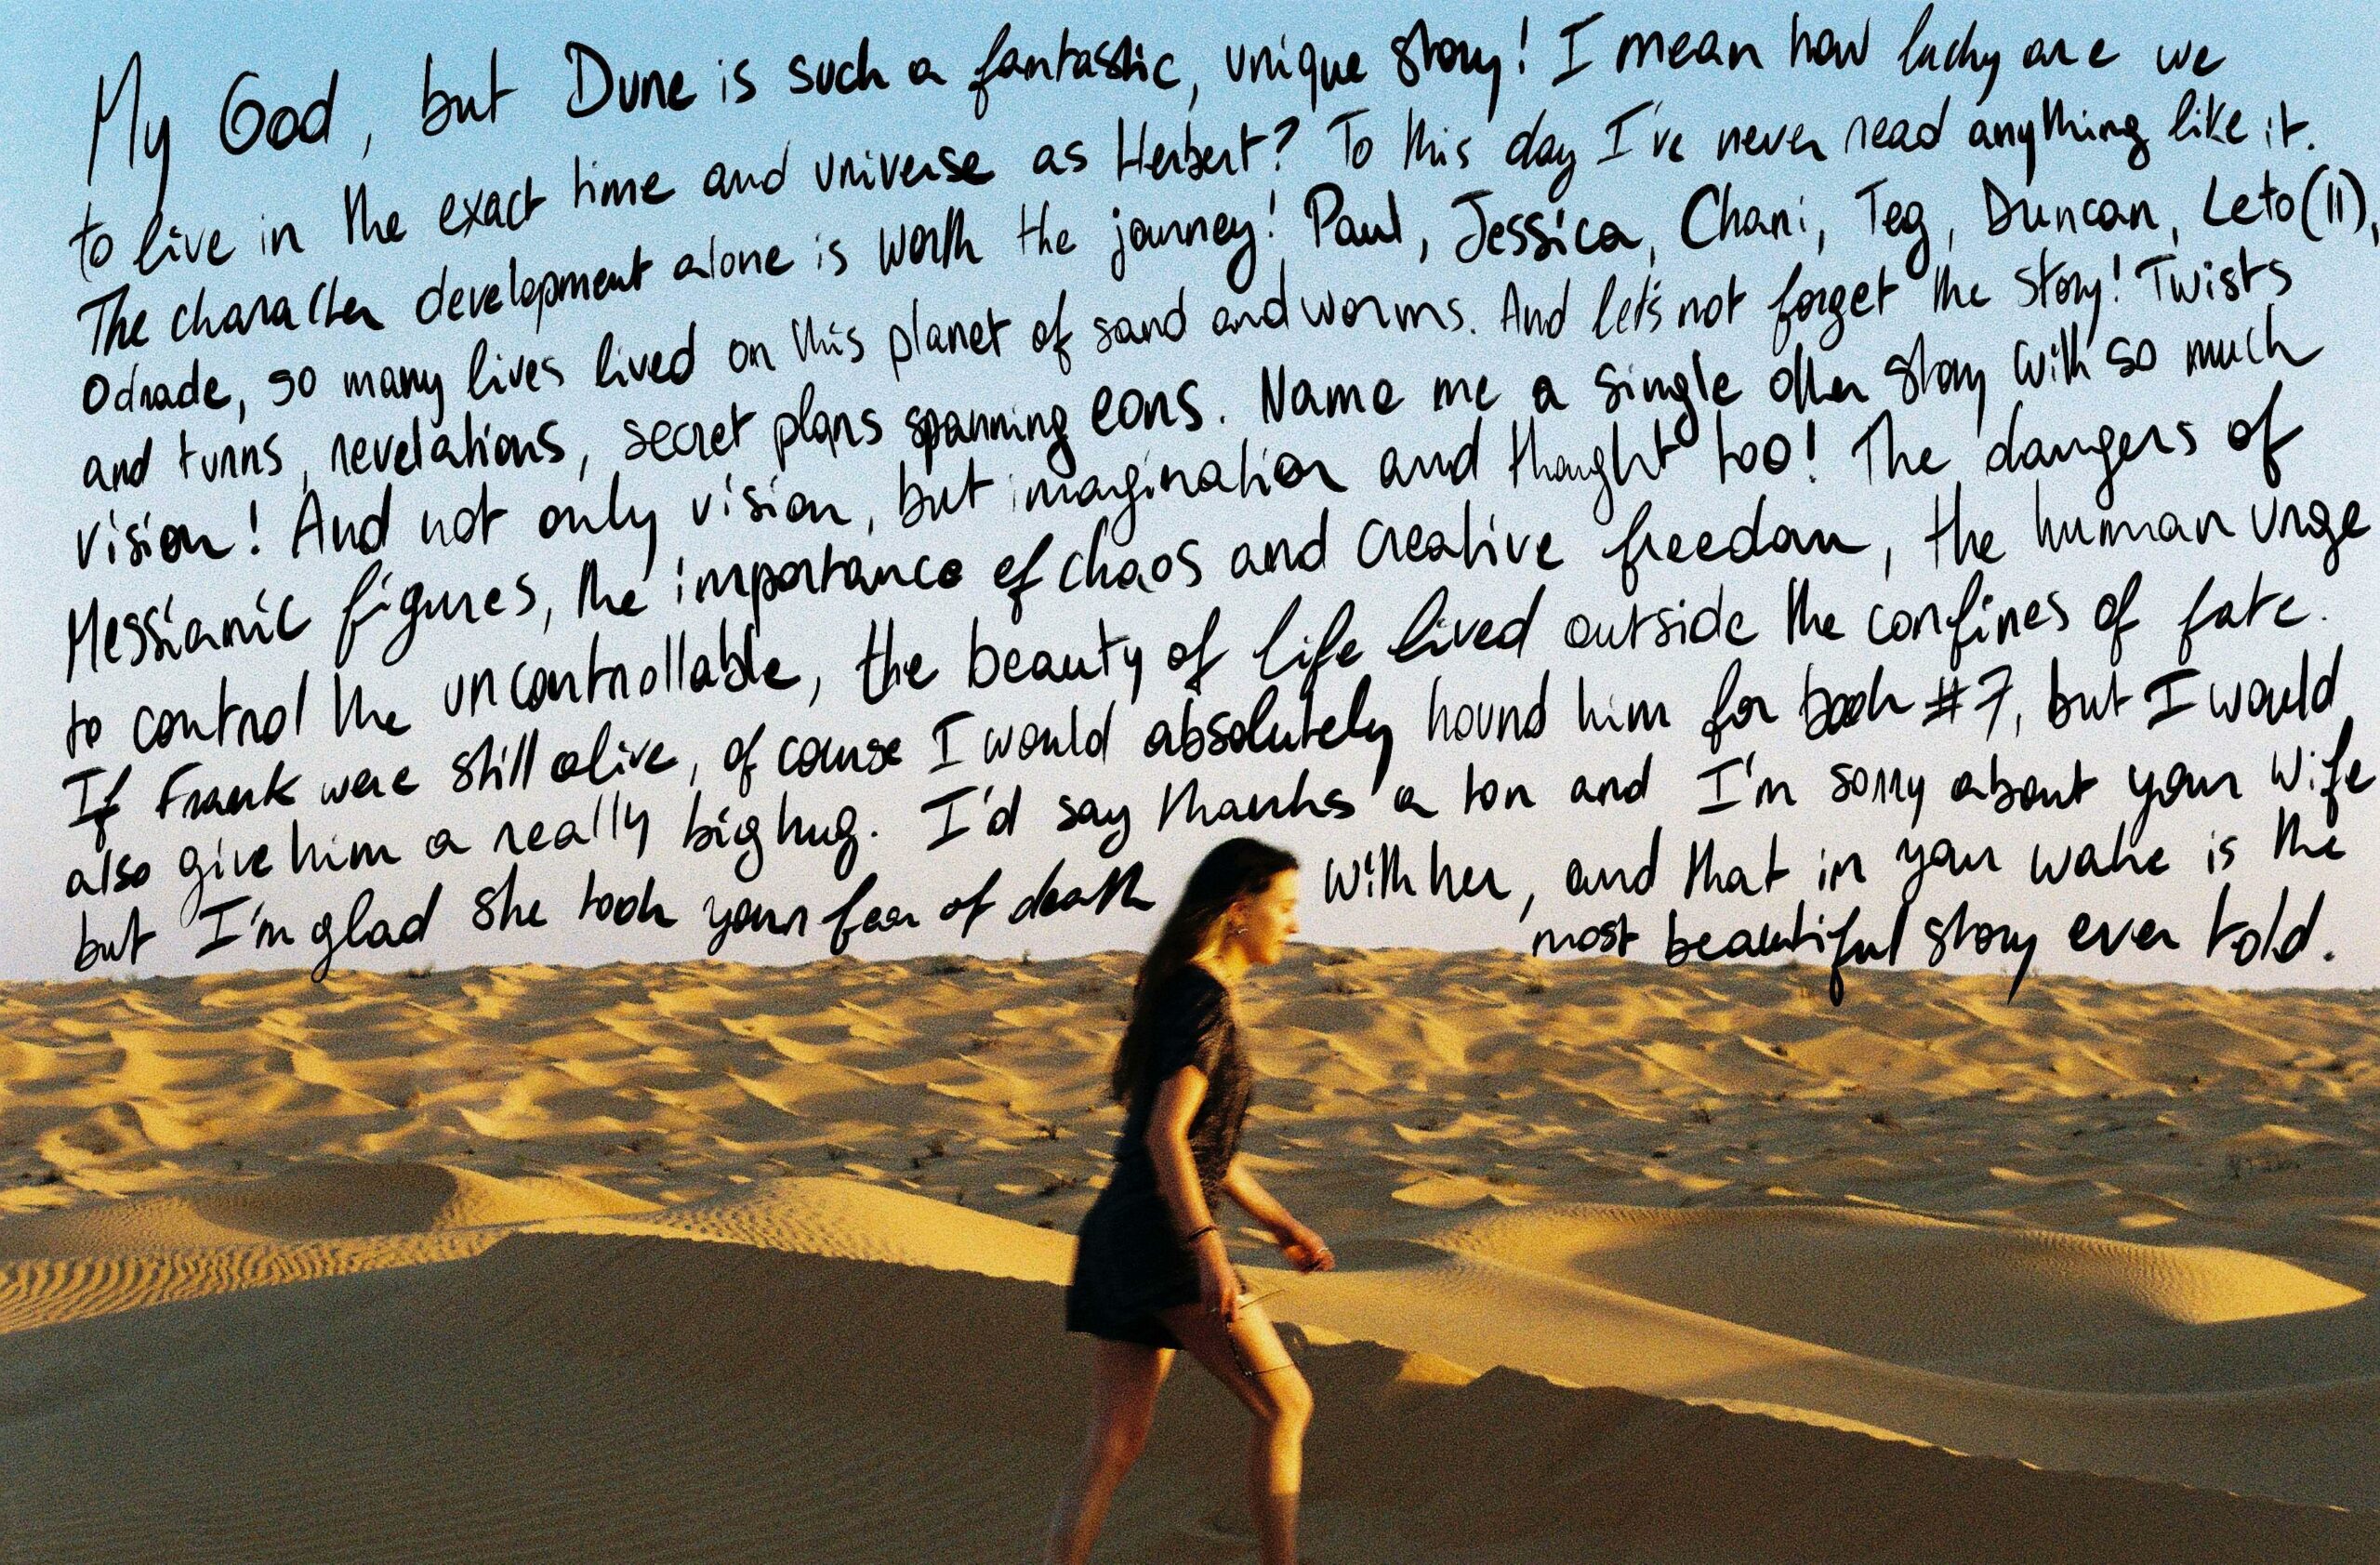 My God, but Dune is such a fantastic, unique story! I mean how lucky are we
to live in the exact time and universe as Herbert? To this day I've never read anything like it.
The character development alone is worth the journey! Paul, Jessica, Chani, Teg, Duncan, Leto(II),
Odrade, so many lives lived on this planet of sand and worms. And let's not forget the story! Twists
and turns, revelations, secret plans spanning eons. Name me a single other story with so much
vision! And not only vision, but imagination and thought too! The dangers of
Messianic figures, the importance of chaos and creative freedom, the human urge
to control the uncontrollable, the beauty of life lived outside the confines of fate.
If Frank were still alive, of course I would absolutely hound him for book #7, but I would
also give him a really big hug. I'd say thanks a ton and I'm sorry about your wife
but I'm glad she took your fear of death with her, and that in your wake is the
most beautiful story ever told.